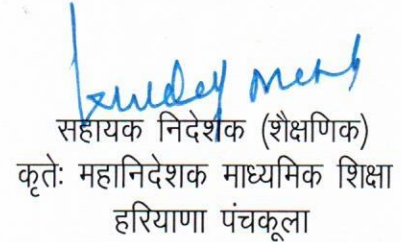 सहायक निदेशक (शैक्षणिक)
कृतेः महानिदेशक माध्यमिक शिक्षा
हरियाणा पंचकूला